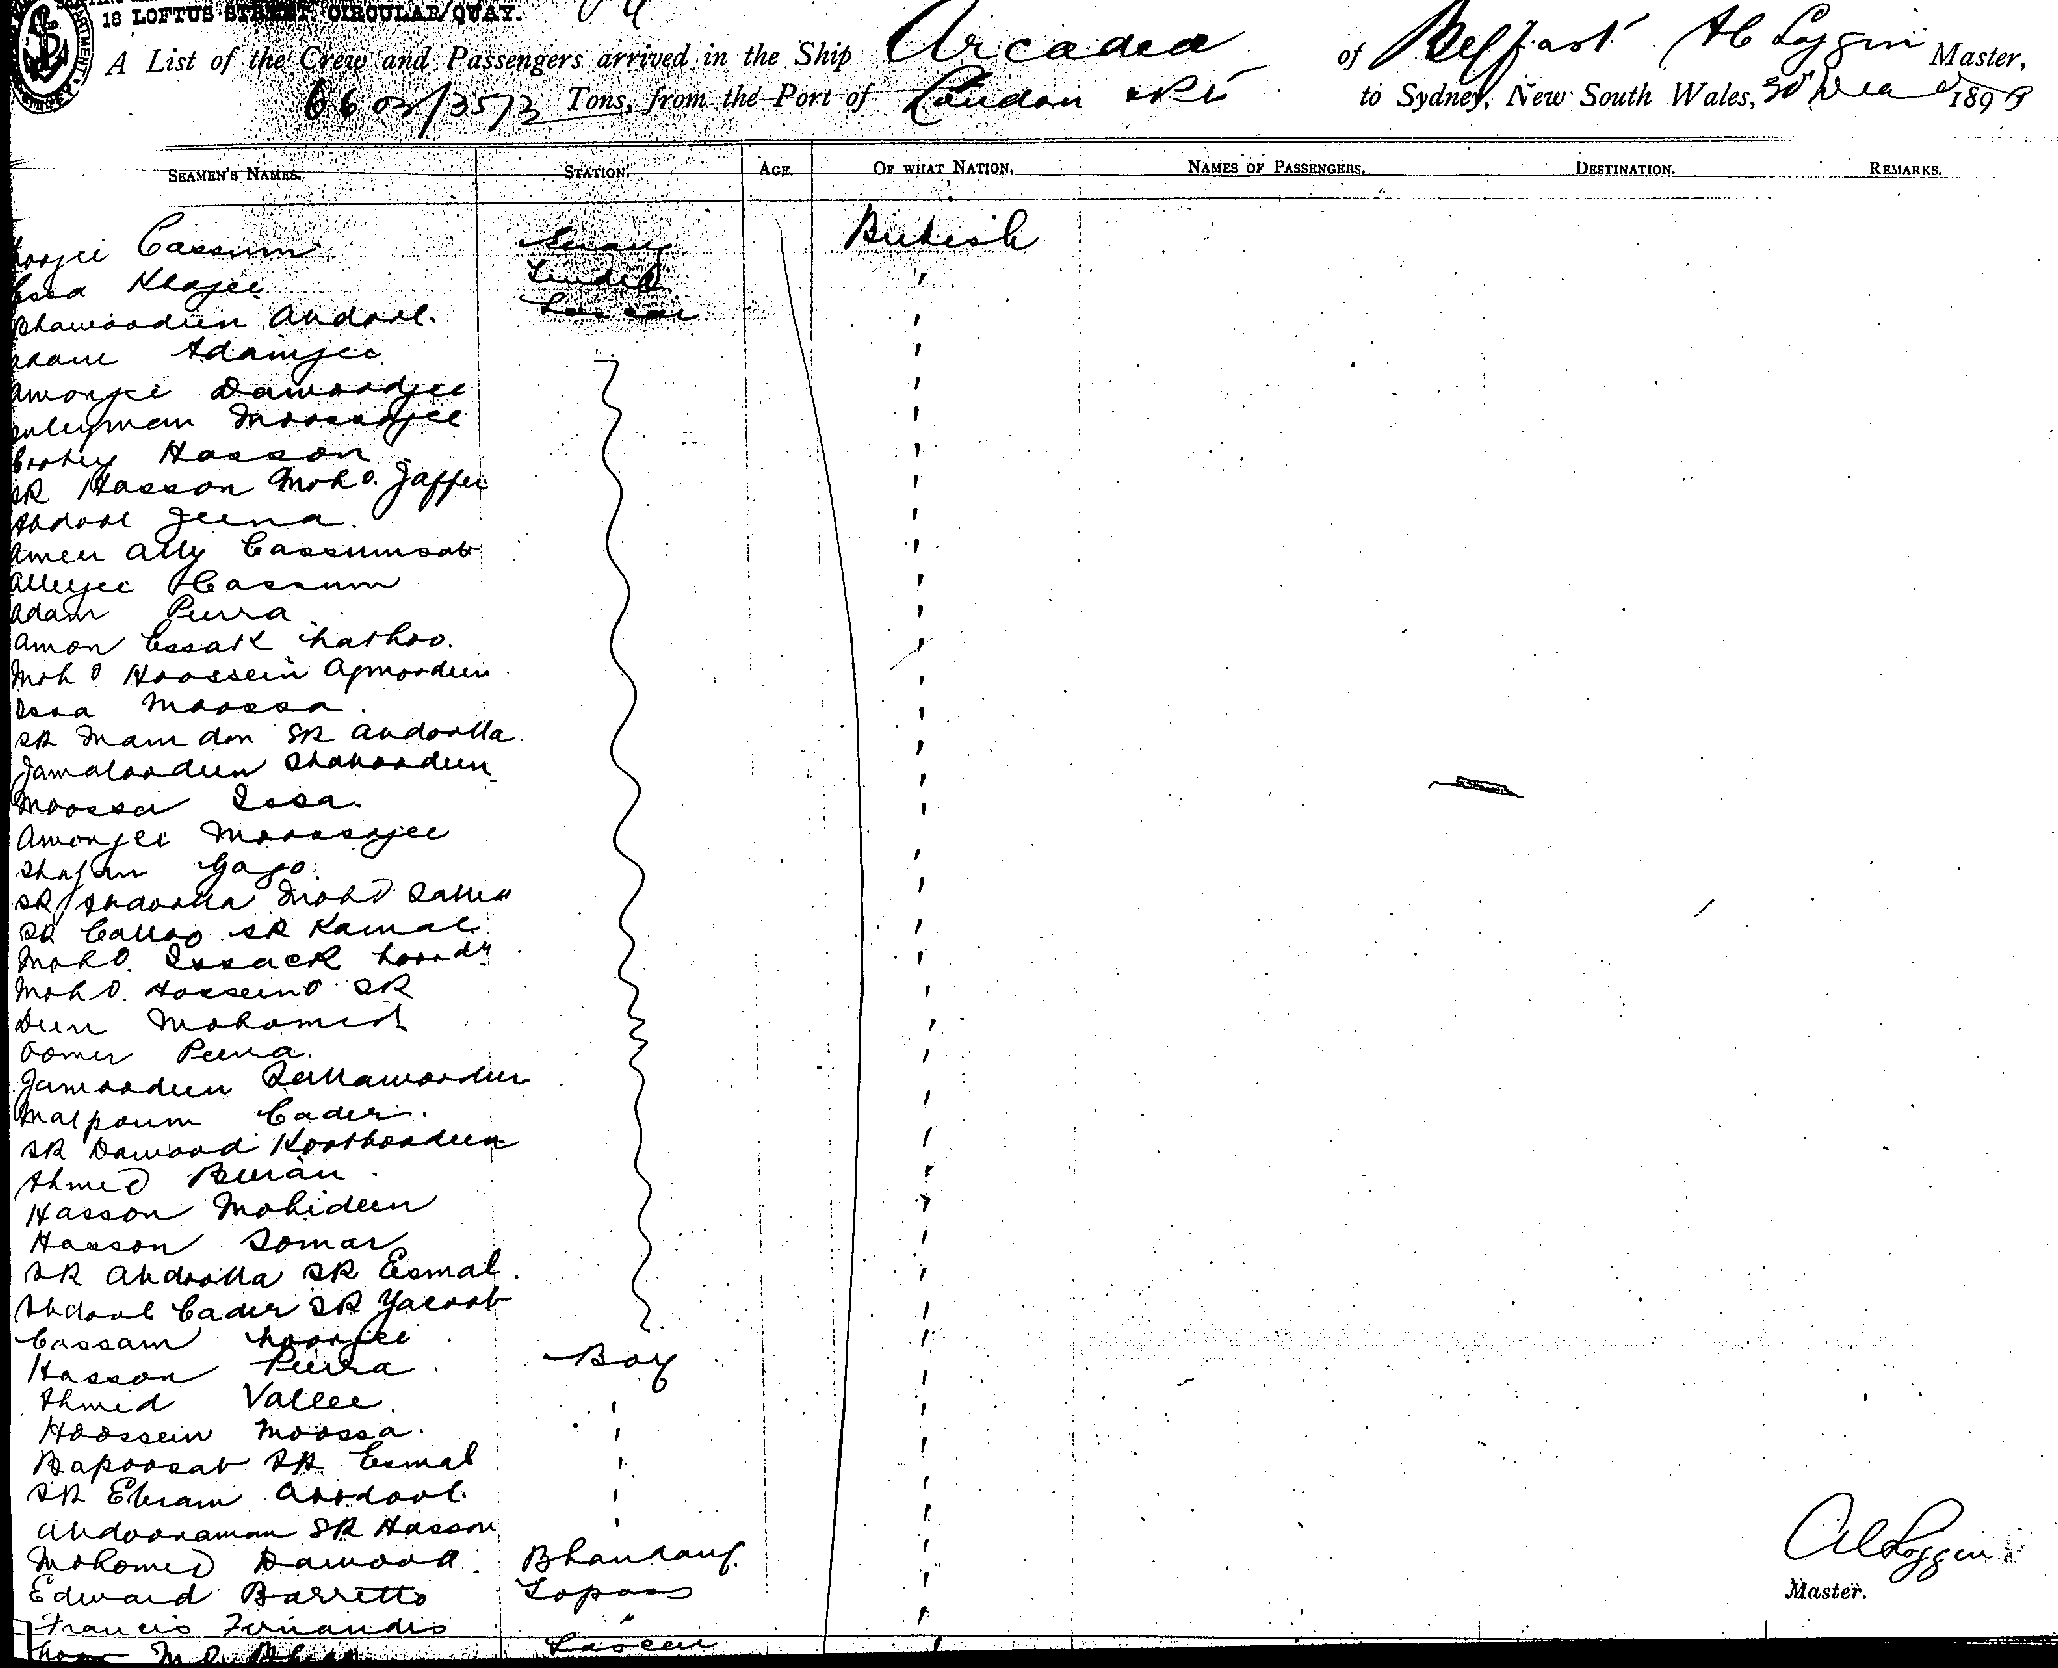 18 LOFTUS STREET, CIRCULAR QUAY.
A List of the Crew and Passengers arrived in the Ship Arcadia of Belfast A C Loggin Master,
6603/3573 Tons, from the Port of London to Sydney, New South Wales, 30 189
SEAMEN'S NAMES. STATION. AGE. OF WHAT NATION. NAMES OF PASSENGERS. DESTINATION. REMARKS.
Cassum Serang British
Essa Tindal "
Abdool. Lascar "
Adamjee "
Amonjee Dawoodjee "
Suleyman Moossajee "
Hasson "
SR Hasson Moh.d Jaffer "
Abdool Jeena "
Ameer Ally Cassumsab "
Alleyjee Cassum "
Adam Peera "
Amon Essak Nathoo. "
Moh d Hoossein Ajmoodeen "
Issa Moossa. "
SR Mamdon SR Abdoolla. "
Jamaloodeen Shaboodeen "
Moossa Issa. "
Amonjee Moossajee "
Gago. "
SR Abdoolla Moh d "
SR Calloo SR Kamal. "
Moh d. Issack
Moh d. Hosseino SR "
Deen Mohomed "
Oomer Peera. "
Jamoodeen "
Cader. "
SR Dawood Kootboodeen "
Ahmed "
Hasson Mohideen "
Hasson Somar "
SR Abdoolla SR Esmal. "
Abdool Cader SR Yacoob "
Cassam Noorjee "
Hasson Peera Boy "
Ahmed Vallee. " "
Hoossein Moossa. " "
Bapoosab SR Esmal " "
SR Ebram Abdool. " "
Abdooraman SR Hasson " "
Mohomed Dawood. Bhandary "
Edward Barretto Topass "
Francis Fernandis " "
Lascar "
A C Loggin
Master.